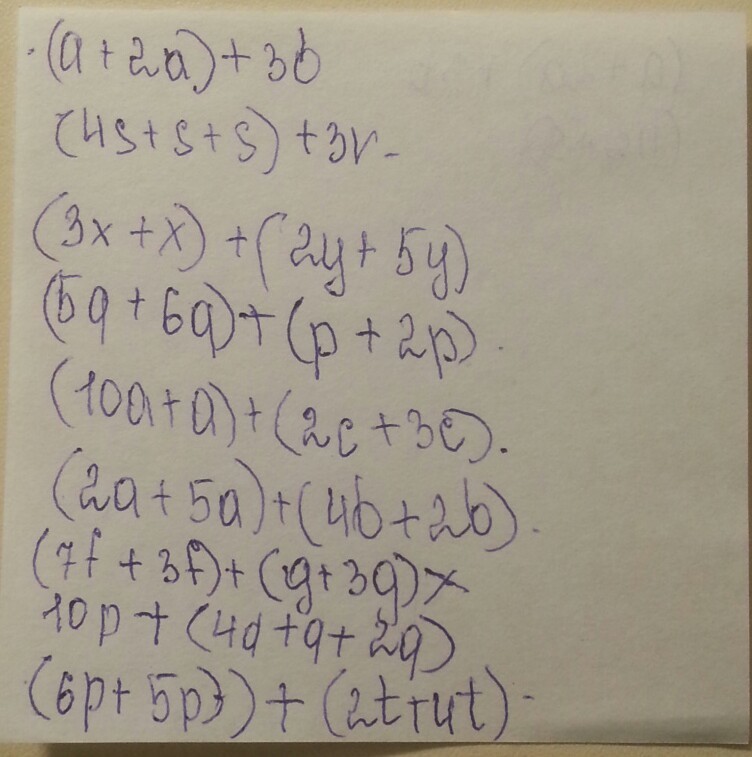 (a + 2a) + 3b
(4s + s + s) + 3r
(3x + x) + (2y + 5y)
(5q + 6q) + (p + 2p)
(10a + a) + (2c + 3c).
(2a + 5a) + (4b + 2b)
(7f + 3f) + (g + 3g)
10p + (4q + q + 2q)
(6p + 5p) + (2t + 4t)